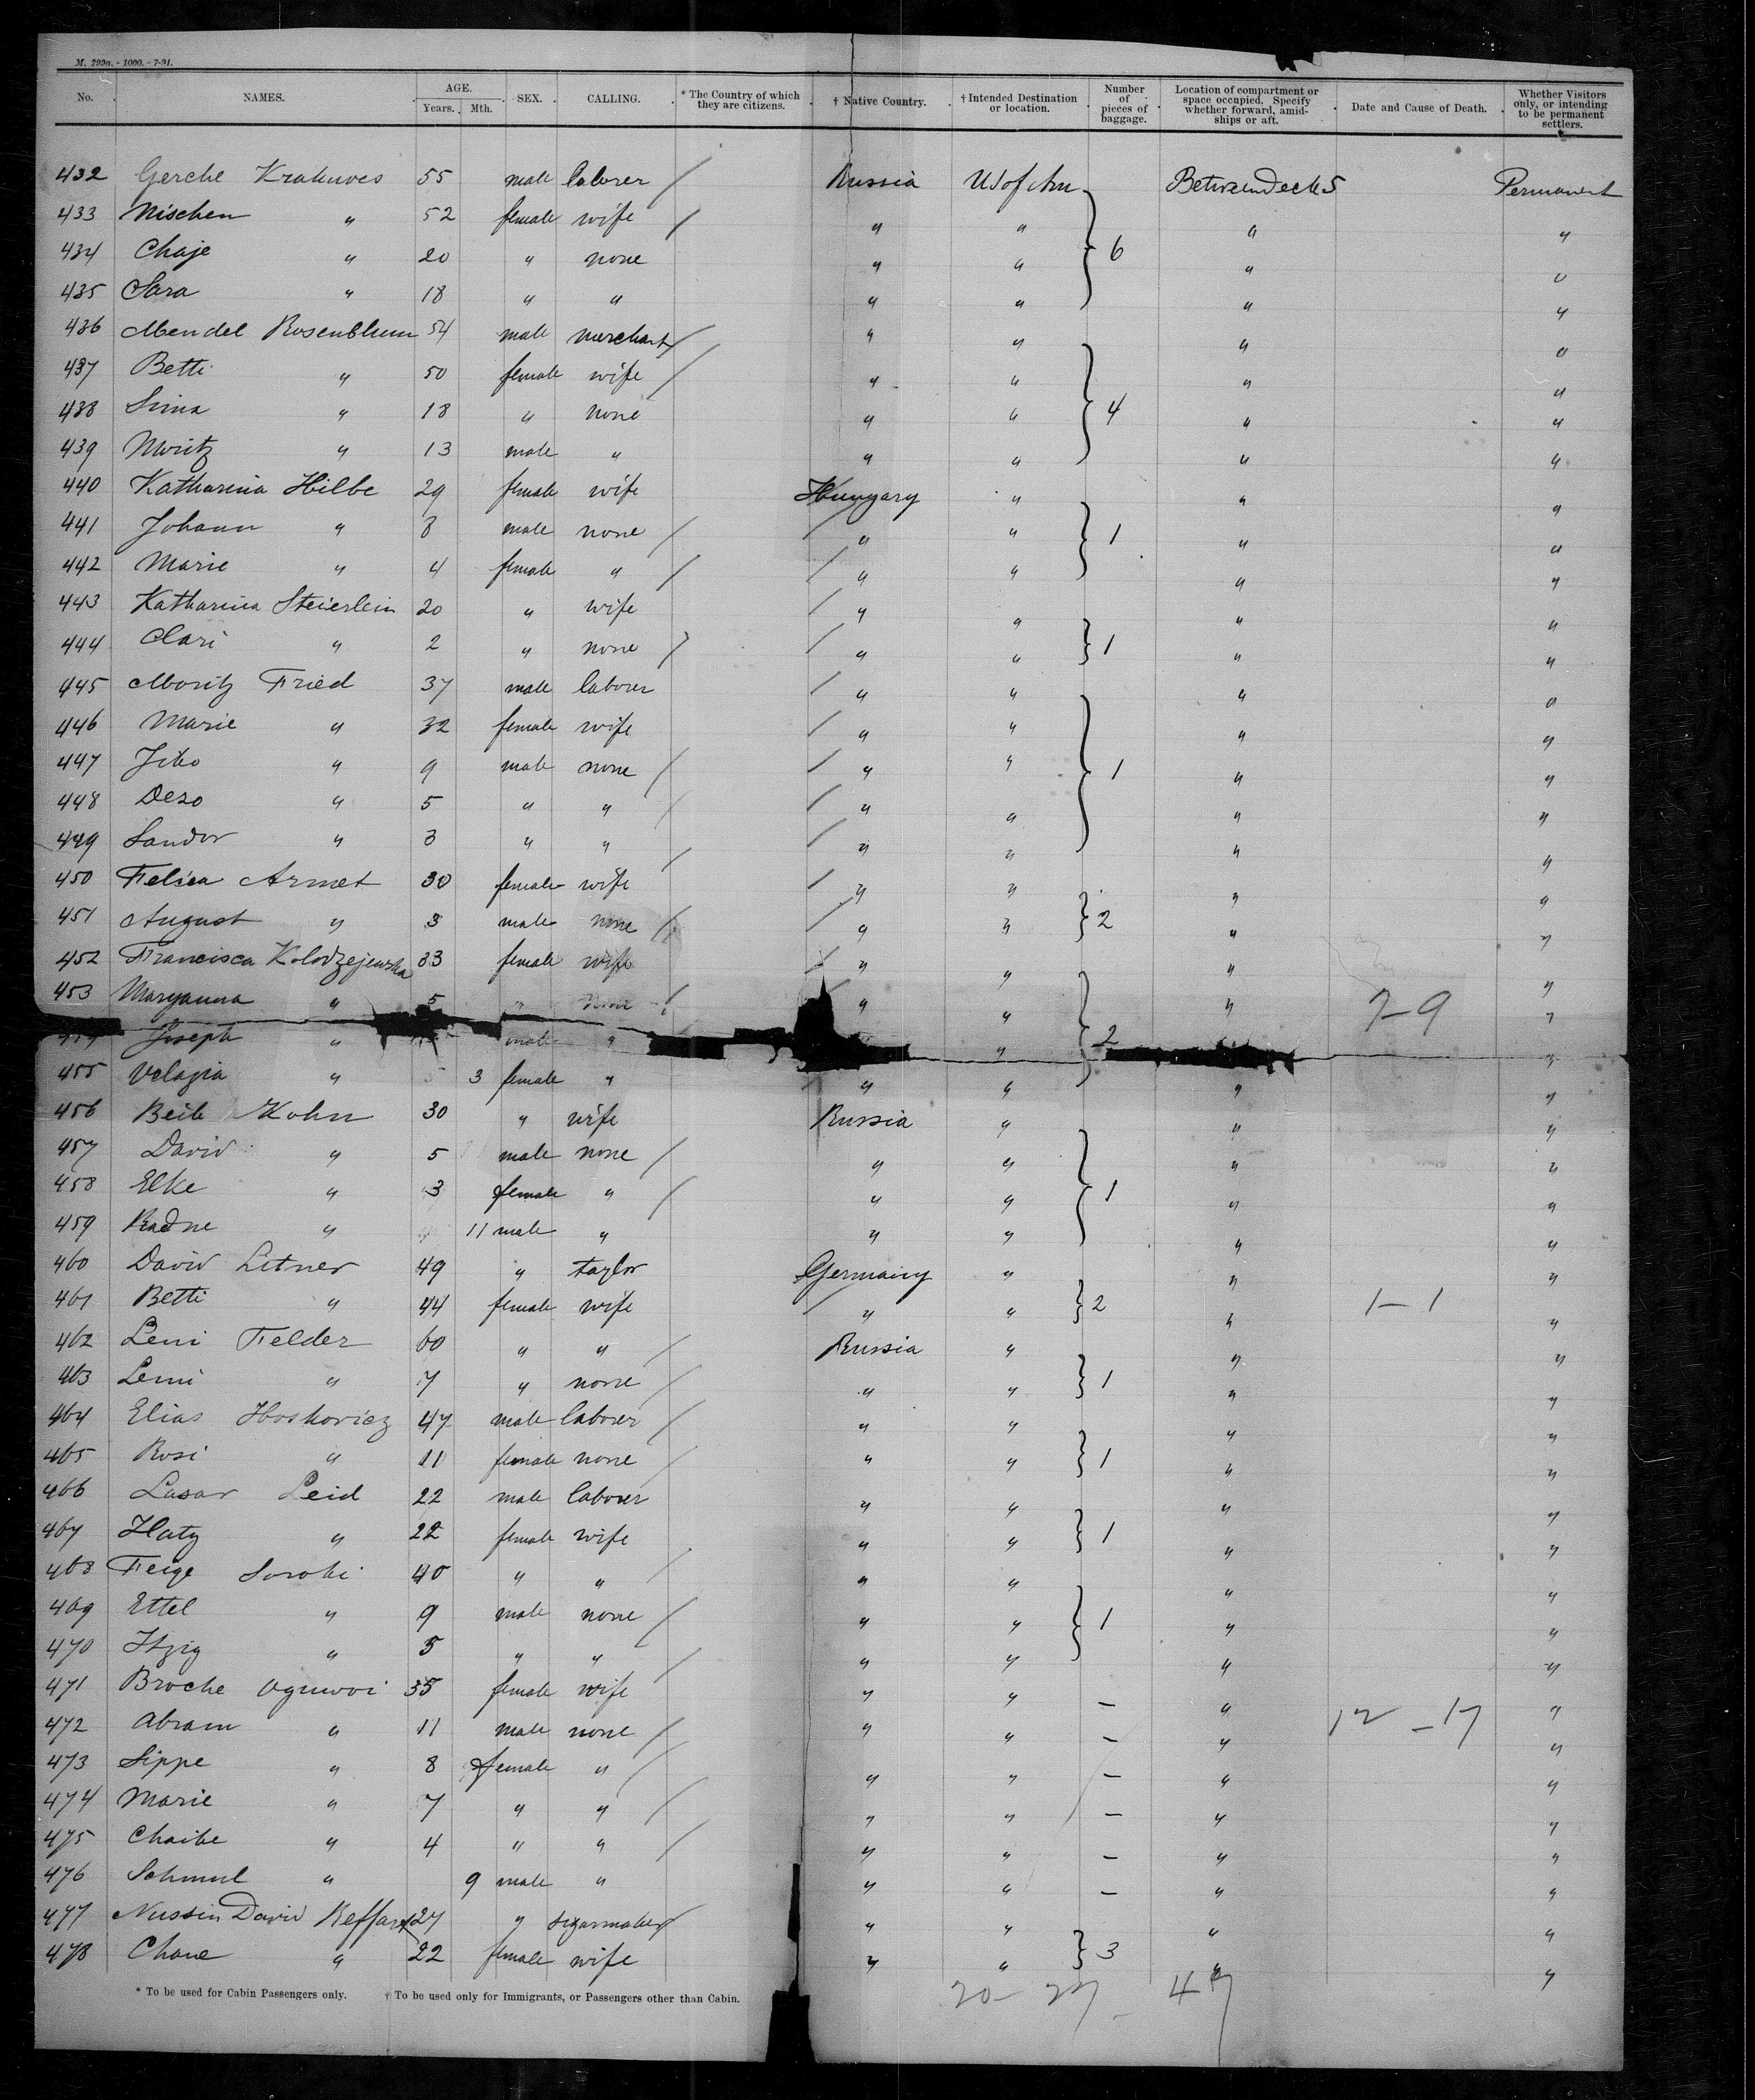 M. 299a. - 1000. - 7-91.
No. NAMES. AGE. Years. Mth. SEX. CALLING. * The Country of which they are citizens. † Native Country. † Intended Destination or location. Number of pieces of baggage. Location of compartment or space occupied. Specify whether forward, amidships or aft. Date and Cause of Death. Whether Visitors only, or intending to be permanent settlers.
432 Gerche 55 male laborer / Russia US of Am Between Decks Permanent
433 Mischen " 52 female wife / " " " "
434 Chaje " 20 " none " " 6 " "
435 Sara " 18 " " " " " "
436 Mendel Rosenblum 54 male merchant / " " " "
437 Betti " 50 female wife / " " " "
438 Sima " 18 " none " " 4 " "
439 Moritz " 13 male " " " " "
440 Katharina Hilbe 29 female wife Hungary " " "
441 Johann " 8 male none / / " " 1 " "
442 Marie " 4 female " / / " " " "
443 Katharina Steierlein 20 " wife / " " " "
444 Clari " 2 " none / / " " 1 " "
445 Moritz Fried 37 male laborer / " " " "
446 Marie " 32 female wife / " " " "
447 " 9 male none / / " " 1 " "
448 Dezo " 5 " " / / " " " "
449 Sandor " 3 " " / / " " " "
450 Felica Armet 30 female wife / " " " "
451 August " 3 male none / / " " 2 " "
452 Francisca Kolodzejewska 33 female wife / " " " "
453 Maryanna " 5 " none / " " " 7-9 "
Joseph " male " " 2 "
455 " 3 female " " " " "
456 Beile Kohn 30 " wife Russia " " "
457 David " 5 male none / " " " "
458 Elke " 3 female " / " " 1 " "
459 Radne " 11 male " " " " "
460 David Litner 49 " taylor Germany " " "
461 Betti " 44 female wife / " " 2 " 1-1 "
462 Leni Felder 60 " " / Russia " " "
463 Leni " 7 " none / " " 1 " "
464 Elias 47 male laborer / " " " "
465 Rosi " 11 female none / " " 1 " "
466 Lasar Leid 22 male laborer " " " "
467 Haty " 22 female wife " " 1 " "
468 Feige 40 " " / " " " "
469 Ettel " 9 male none / " " 1 " "
470 Itzig " 5 " " / " " " "
471 Broche 35 female wife " " - " "
472 Abram " 11 male none / " " - " 12-17 "
473 Sippe " 8 female " / " " - " "
474 Marie " 7 " " / " " - " "
475 Chaibe " 4 " " / " " - " "
476 Schmul " 9 male " " " - " "
477 Nussin David 27 " sigarmaker " " " "
478 Chane " 22 female wife " " 3 " "
* To be used for Cabin Passengers only. † To be used only for Immigrants, or Passengers other than Cabin.
20- 27- 47